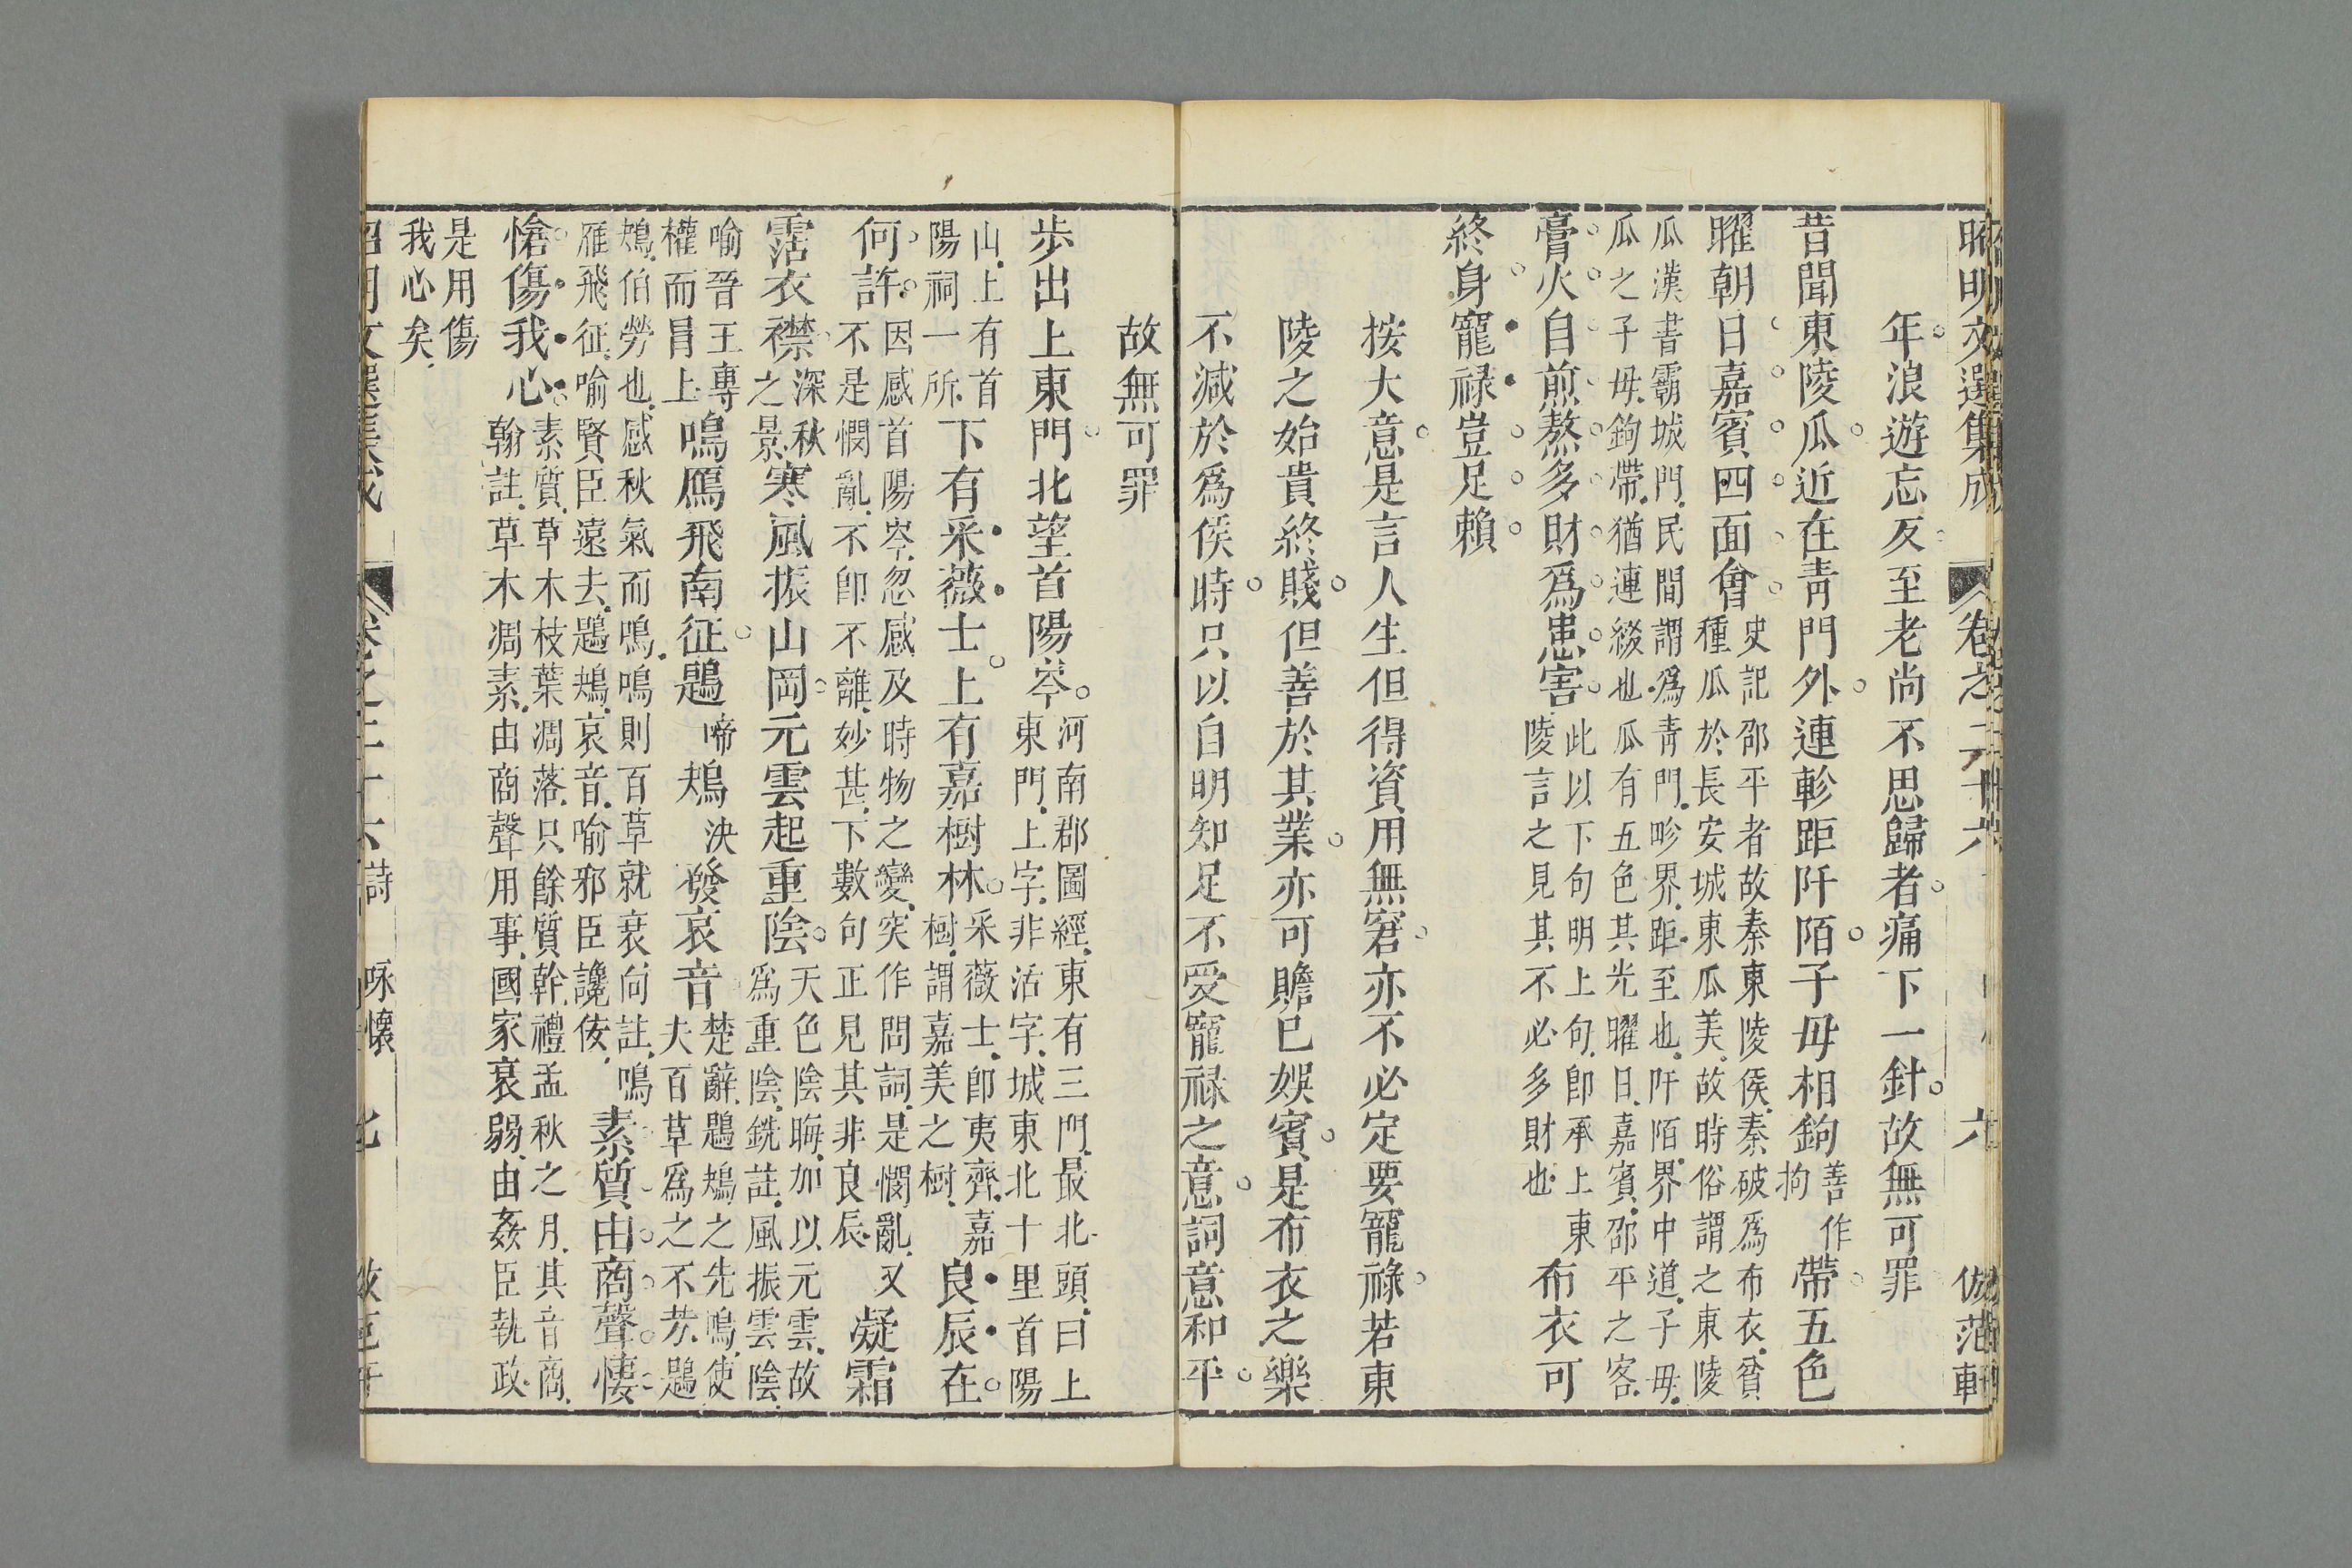 昭明文選集成 卷之二十六 六 倣范軒
年浪遊忘反至老尚不思歸者痛下一針故無可罪
昔聞東陵瓜近在青門外連畛距阡陌子毋相鉤善作拘帶五色
曜朝日嘉賓四面會史記邵平者故秦東陵侯秦破為布衣貧種瓜於長安城東瓜美故時俗謂之東陵
瓜漢書霸城門民間謂為青門畛界距至也阡陌界中道子毋
瓜之子毋鉤帶猶連綴也瓜有五色其光曜日嘉賓邵平之客
膏火自煎熬多財為患害此以下句明上句卽承上東陵言之見其不必多財也布衣可
終身寵祿豈足賴
按大意是言人生但得資用無窘亦不必定要寵祿若東
陵之始貴終賤但善於其業亦可贍已娛賓是布衣之樂
不減於為侯時只以自明知足不受寵祿之意詞意和平
故無可罪
步出上東門北望首陽岑河南郡圖經東有三門最北頭曰上東門上字非活字城東北十里首陽
山上有首陽祠一所下有采薇士上有嘉樹林采薇士卽夷齊嘉樹謂嘉美之樹良辰在
何許因感首陽岑忽感及時物之變突作問詞是憫亂又不是憫亂不卽不離妙甚下數句正見其非良辰凝霜
霑衣襟深秋之景寒風振山岡元雲起重陰天色陰晦加以元雲故為重陰銑註風振雲陰
喻晉王專權而冐上鳴鴈飛南征鶗啼鴂決發哀音楚辭鶗鴂之先鳴使夫百草為之不芳鶗
鴂伯勞也感秋氣而鳴鳴則百草就衰向註鳴雁飛征喻賢臣遠去鶗鴂哀音喻邪臣讒侫素質由商聲悽
愴傷我心素質草木枝葉凋落只餘質幹禮孟秋之月其音商翰註草木凋素由商聲用事國家衰弱由姦臣執政
是用傷我心矣
昭明文選集成 卷之二十六 詩 咏懷 七